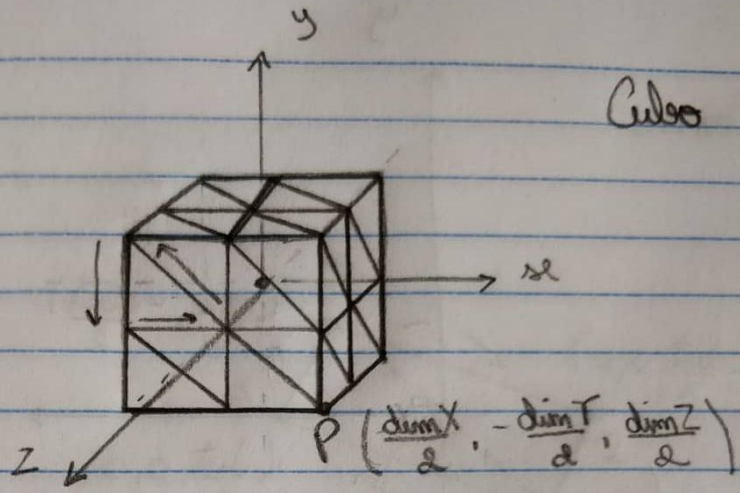 y
Cubo
x
P (dimX/2, -dimY/2, dimZ/2)
Z